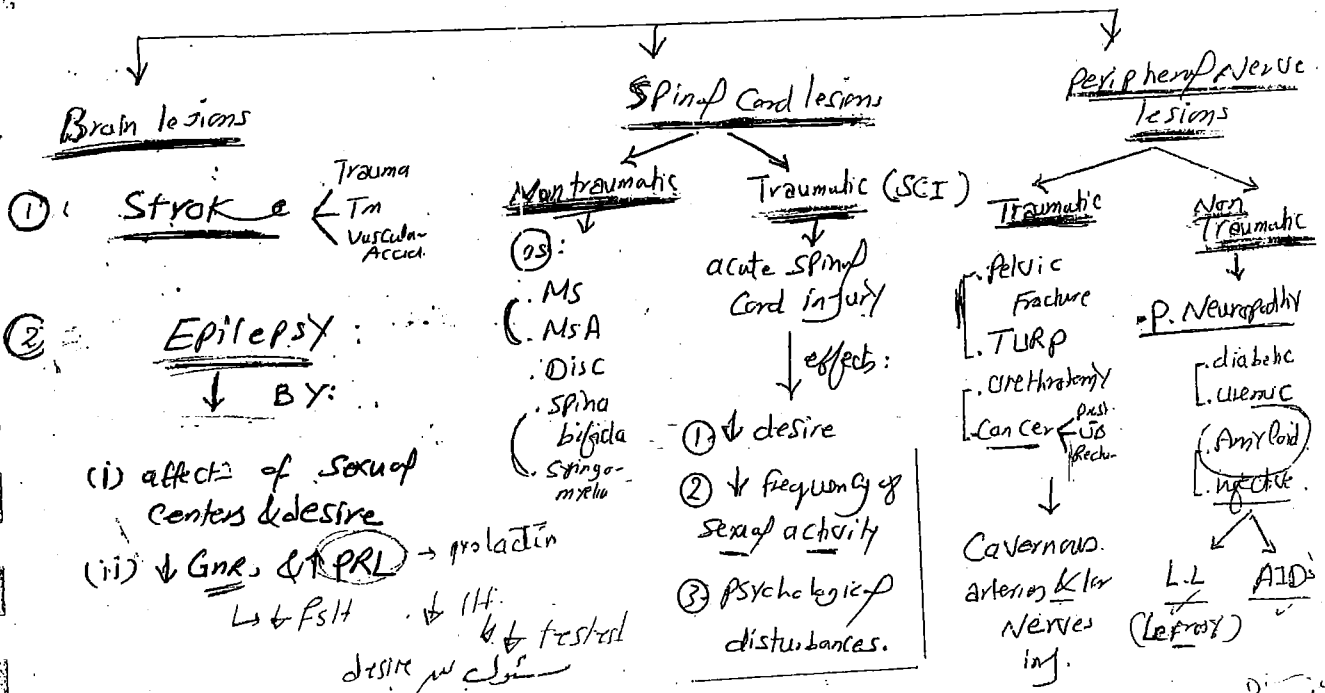 Brain lesions
① Stroke
Trauma
Tm
Vascular
Accid.
② Epilepsy :
BY:
(i) affect= of sexual
centers & desire
(ii) ↓ GnR, & ↑ PRL → prolactin
↳ ↓ FSH ↓ LH
↳ ↓ testost
desire مسئول عن
Spinal Cord lesions
Non traumatic
as:
. MS
. MSA
. Disc
. spina
bifida
. syringo-
myelia
Traumatic (SCI)
acute spinal
Cord injury
effects:
① ↓ desire
② ↓ frequency of
sexual activity
③ psychological
disturbances.
peripheral Nerve
lesions
Traumatic
. Pelvic
Fracture
. TURP
. urethrotomy
. Cancer
Prost.
UB
Rectu-
Cavernous
arteries &/or
Nerves
inj.
Non
Traumatic
. P. Neuropathy
. diabetic
. uremic
Amyloid
. infective.
L.L
(Leprosy)
AIDs